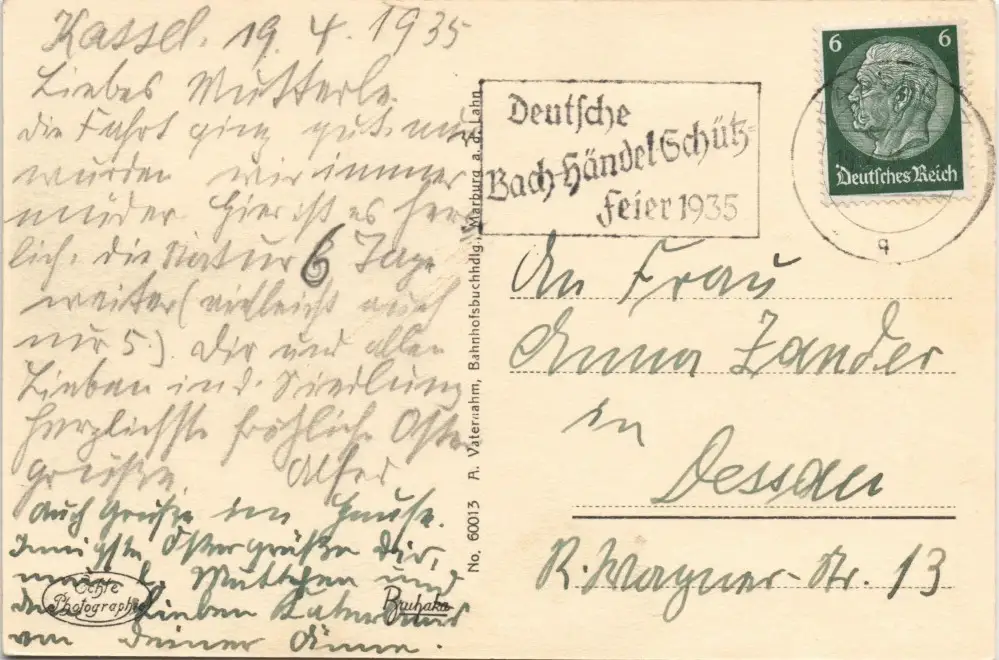 Kassel, 19. 4. 1935
Liebes Mutterle.
die Fahrt ging gut, nur
wurden wir immer
müder. Hier ist es herr-
lich, die Natur 6 Tage
weiter (vielleicht auch
nur 5.) Dir und allen
Lieben in d. Siedlung
herzlichste fröhliche Oster
grüße
Auch Grüße im Hause.
Innigste Ostergrüße Dir,
mein l. Muttchen und
lieben
von Deiner Änne.
Echte
Photographie
Bruhaka
No. 60013 A. Vaternahm, Bahnhofsbuchhdlg., Marburg a. d. Lahn.
Deutsche
Bach-Händel-Schütz-
Feier 1935
6 6
Deutsches Reich
q
An Frau
Anna Zander
in
Dessau
R. Wagner-Str. 13